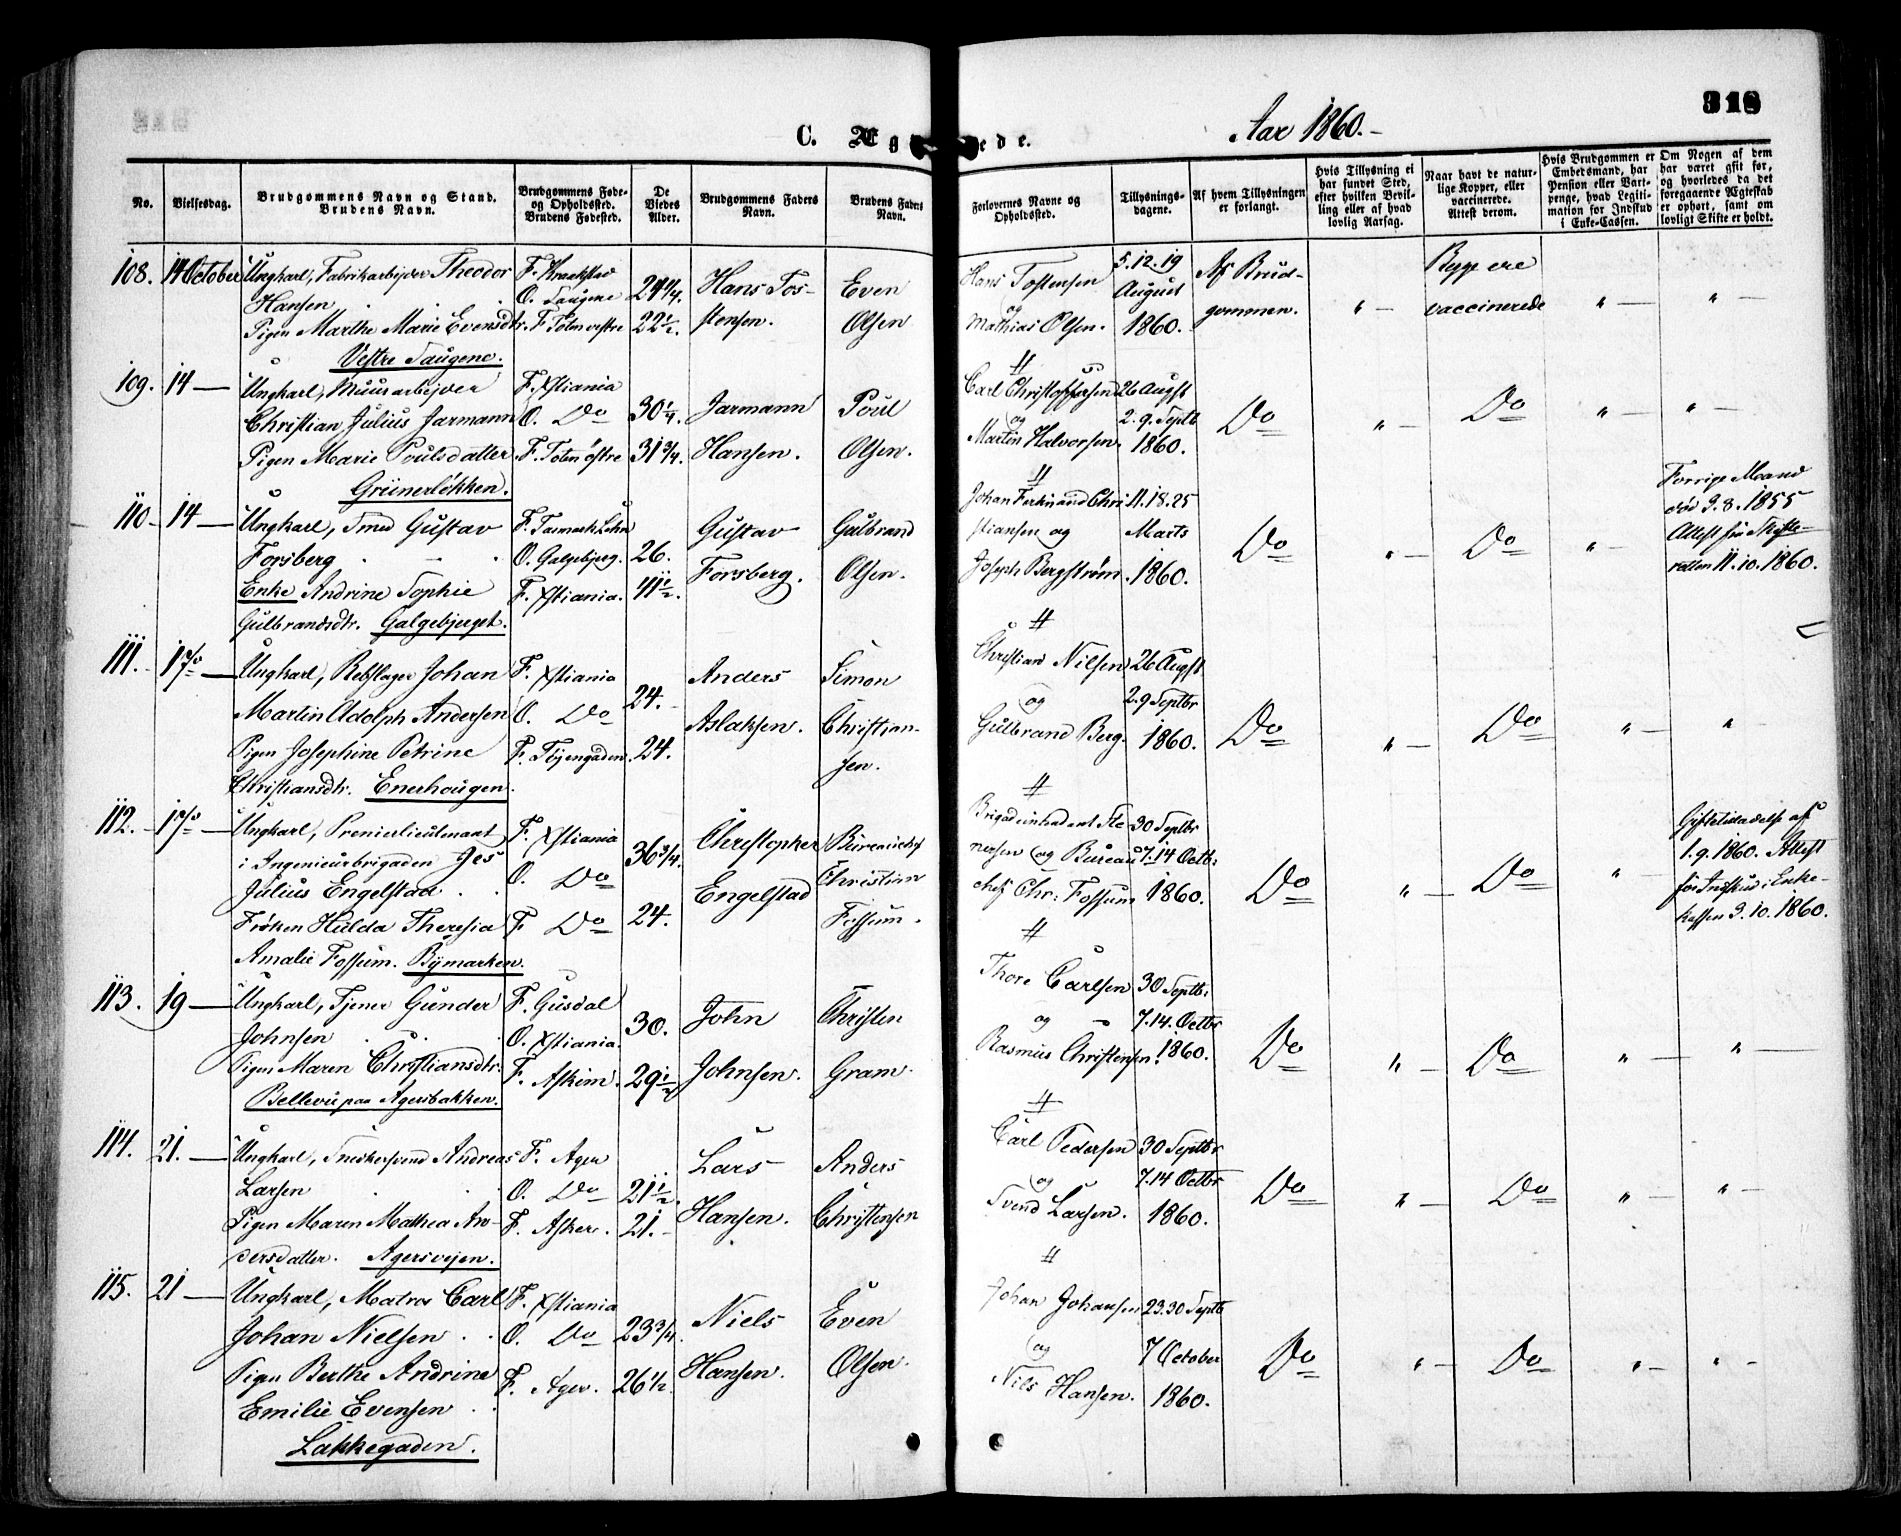 C. Ægtede.
Aar 1860.-
318
No.
Vielsesdag.
Brudgommens Navn og Stand.
Brudens Navn.
Brudgommens Føde-
og Opholdssted.
Brudens Fødested.
De
Viedes
Alder.
Brudgommens Faders
Navn.
Brudens Faders
Navn.
Forlovernes Navne og
Opholdssted.
Tillysnings-
dagene.
Af hvem Tillysningen
er forlangt.
Hvis Tillysning ei
har fundet Sted,
efter hvilken Bevil-
ling eller af hvad
lovlig Aarsag.
Naar havt de natur-
lige Kopper, eller
vaccinerede.
Attest derom.
Hvis Brudgommen er
Embedsmand, har
Pension eller Vart-
penge, hvad Legiti-
mation for Indskud
i Enke-Cassen.
Om Nogen af dem
har været gift før,
og hvorledes da det
foregaaende Ægteskab
er ophørt, samt om
lovligt Skifte er holdt.
108. 14 October Ungkarl, Fabrikarbejder Theodor
Hansen
Pigen Marthe Marie Evensdtr.
Vestre Saugene.
O. Saugene
F. Toten vestre
24 3/4.
22 1/2.
Hans Tos-
stensen.
Even
Olsen
Hans Tostensen
og
Mathias Olsen.
5.12.19
August
1860.
Af Brud-
gommen.
" —
Begge ere
vaccinerede
" —
" —
109. 14 — Ungkarl, Muurarbejder
Christian Julius Jarmann
Pigen Marie Poulsdatter
Grünerløkken.
F. Xstiania
O. Do
F. Toten østre
30 1/4.
31 3/4.
Jarmann
Hansen.
Poul
Olsen.
Carl Christoffersen
og
Martin Halvorsen.
26 Augst
2.9. Septb
1860.
Do
" —
Do
" —
" —
110 - 14 — Ungkarl, Smed Gustav
Forsberg
Enke Andrine Sophie
Gulbrandsdtr. Galgebjerget.
O. Galgebjerg.
F. Xstiania.
26.
41 1/2.
Gustav
Forsberg.
Gulbrand
Olsen.
Johan Ferdinand Chri-
stiansen og
Joseph Bergstrøm.
11.18.25
Marts
1860.
Do
" —
Do
" —
Forrige Mand
død 9.8.1855
Attest fra Skifte-
retten 11.10.1860.
111. - 17/10 — Ungkarl, Rebslager Johan
Martin Adolph Andersen
Pigen Josephine Petrine
Christiansdtr. Enerhougen.
F. Xstiania
O. Do
F. Tøjengaden.
24.
24.
Anders
Aslaksen.
Simon
Christian-
sen.
Christian Nilsen
og
Gulbrand Berg.
26 Augst
2.9 Septbr
1860.
Do
" —
Do
" —
"
112. - 17/10 — Ungkarl, Premierlieutenant
i Ingenieurbrigaden Jes
Julius Engelstad
Frøken Hulda Theresia
Amalie Fossum. Bymarken.
F. Xstiania
O. Do
F Do
36 3/4.
24.
Christopher
Engelstad
Bureauchef
Christian
Fossum.
Brigadeintendant Ste-
nersen og Bureau-
chef Chr: Fossum
30 Septbr
7.14 Octb:
1860.
Do
" —
Do
" —
Giftetilladelse af
1.9.1860. Attest
for Indskud i Enke-
kassen 9.10.1860.
113. 19 — Ungkarl, Tjener Gunder
Johnsen
Pigen Maren Christiansdtr.
Bellevu paa Agersbakken.
F. Gusdal
O. Xstiania.
F. Askim.
30.
29 1/2
John
Johnsen.
Christen
Gram.
Thore Carlsen
og
Rasmus Christensen.
30 Septb:
7.14. Octbr
1860.
Do
" —
Do
" —
" —
114. 21. — Ungkarl, Snedkersvend Andreas
Larsen
Pigen Maren Mathea An-
dersdatter. Agersvejen.
F. Ager
O. Do
F. Asker.
21 1/2.
21.
Lars
Hansen.
Anders
Christensen
Carl Pedersen
og
Svend Larsen.
30 Septbr
7.14 Octbr
1860.
Do
" —
Do
" —
" —
115. 21 — Ungkarl, Matros Carl
Johan Nielsen
Pigen Berthe Andrine
Emilie Evensen
Lakkegaden.
F. Xstiania
O. Do
F. Ager.
23 3/4.
26 1/2.
Niels
Hansen.
Even
Olsen.
Johan Johansen
og
Nils Hansen.
23.30 Septb
7 October
1860.
Do
" —
Do
" —
" —